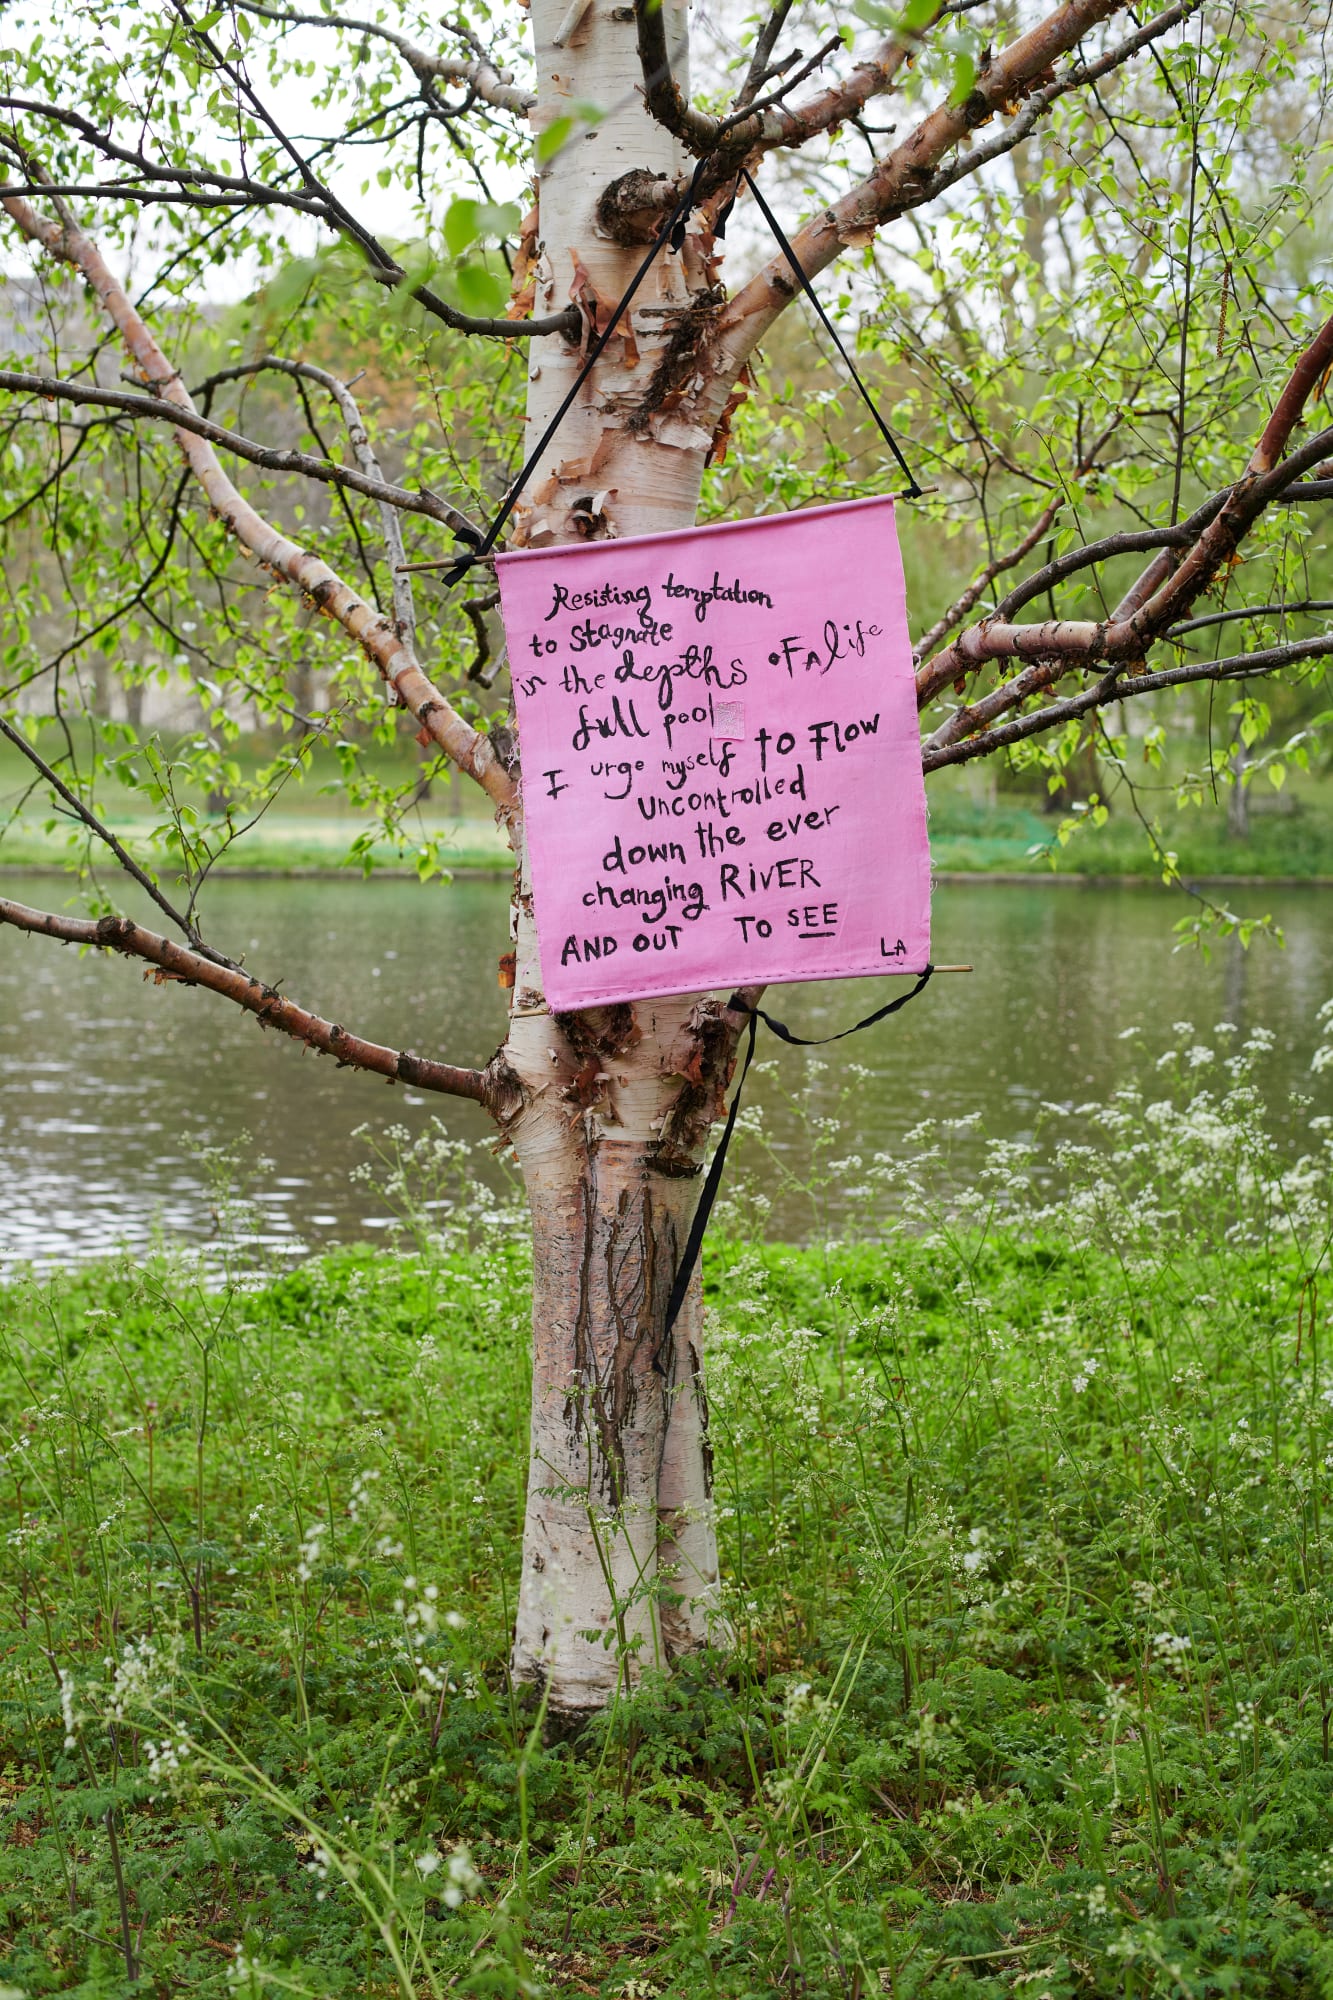 Resisting temptation
to Stagnate
in the depths oF A life
full pool
I urge myself to Flow
uncontrolled
down the ever
changing RiVER
AND OUT TO SEE
LA